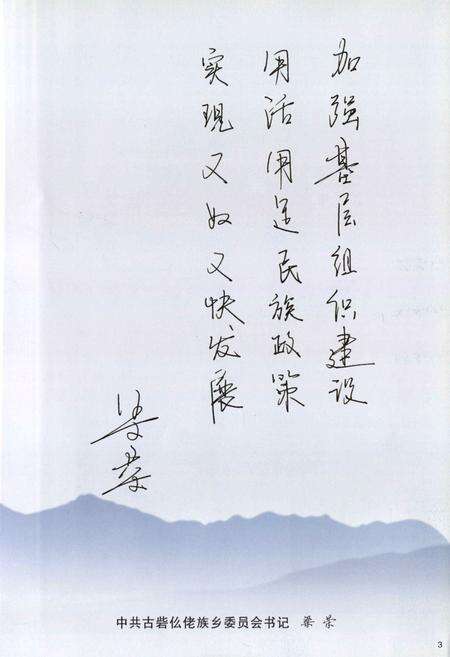 加强基层组织建设
用活用足民族政策
实现又好又快发展
梁荣
中共古砦仫佬族乡委员会书记 梁荣
3